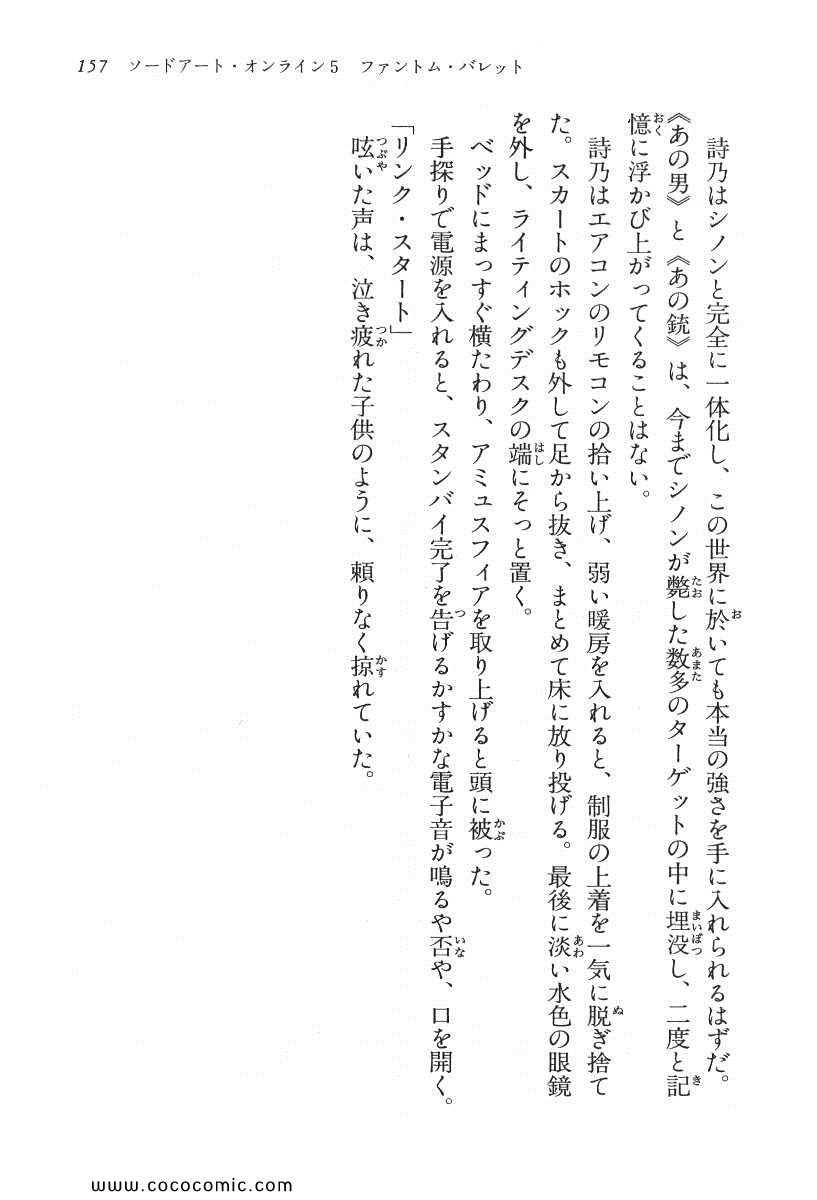 157 ソードアート・オンライン5 ファントム・バレット
詩乃はシノンと完全に一体化し、この世界に於いても本当の強さを手に入れられるはずだ。
《あの男》と《あの銃》は、今までシノンが斃した数多のターゲットの中に埋没し、二度と記
憶に浮かび上がってくることはない。
詩乃はエアコンのリモコンの拾い上げ、弱い暖房を入れると、制服の上着を一気に脱ぎ捨て
た。スカートのホックも外して足から抜き、まとめて床に放り投げる。最後に淡い水色の眼鏡
を外し、ライティングデスクの端にそっと置く。
ベッドにまっすぐ横たわり、アミュスフィアを取り上げると頭に被った。
手探りで電源を入れると、スタンバイ完了を告げるかすかな電子音が鳴るや否や、口を開く。
「リンク・スタート」
呟いた声は、泣き疲れた子供のように、頼りなく掠れていた。
www.cococomic.com